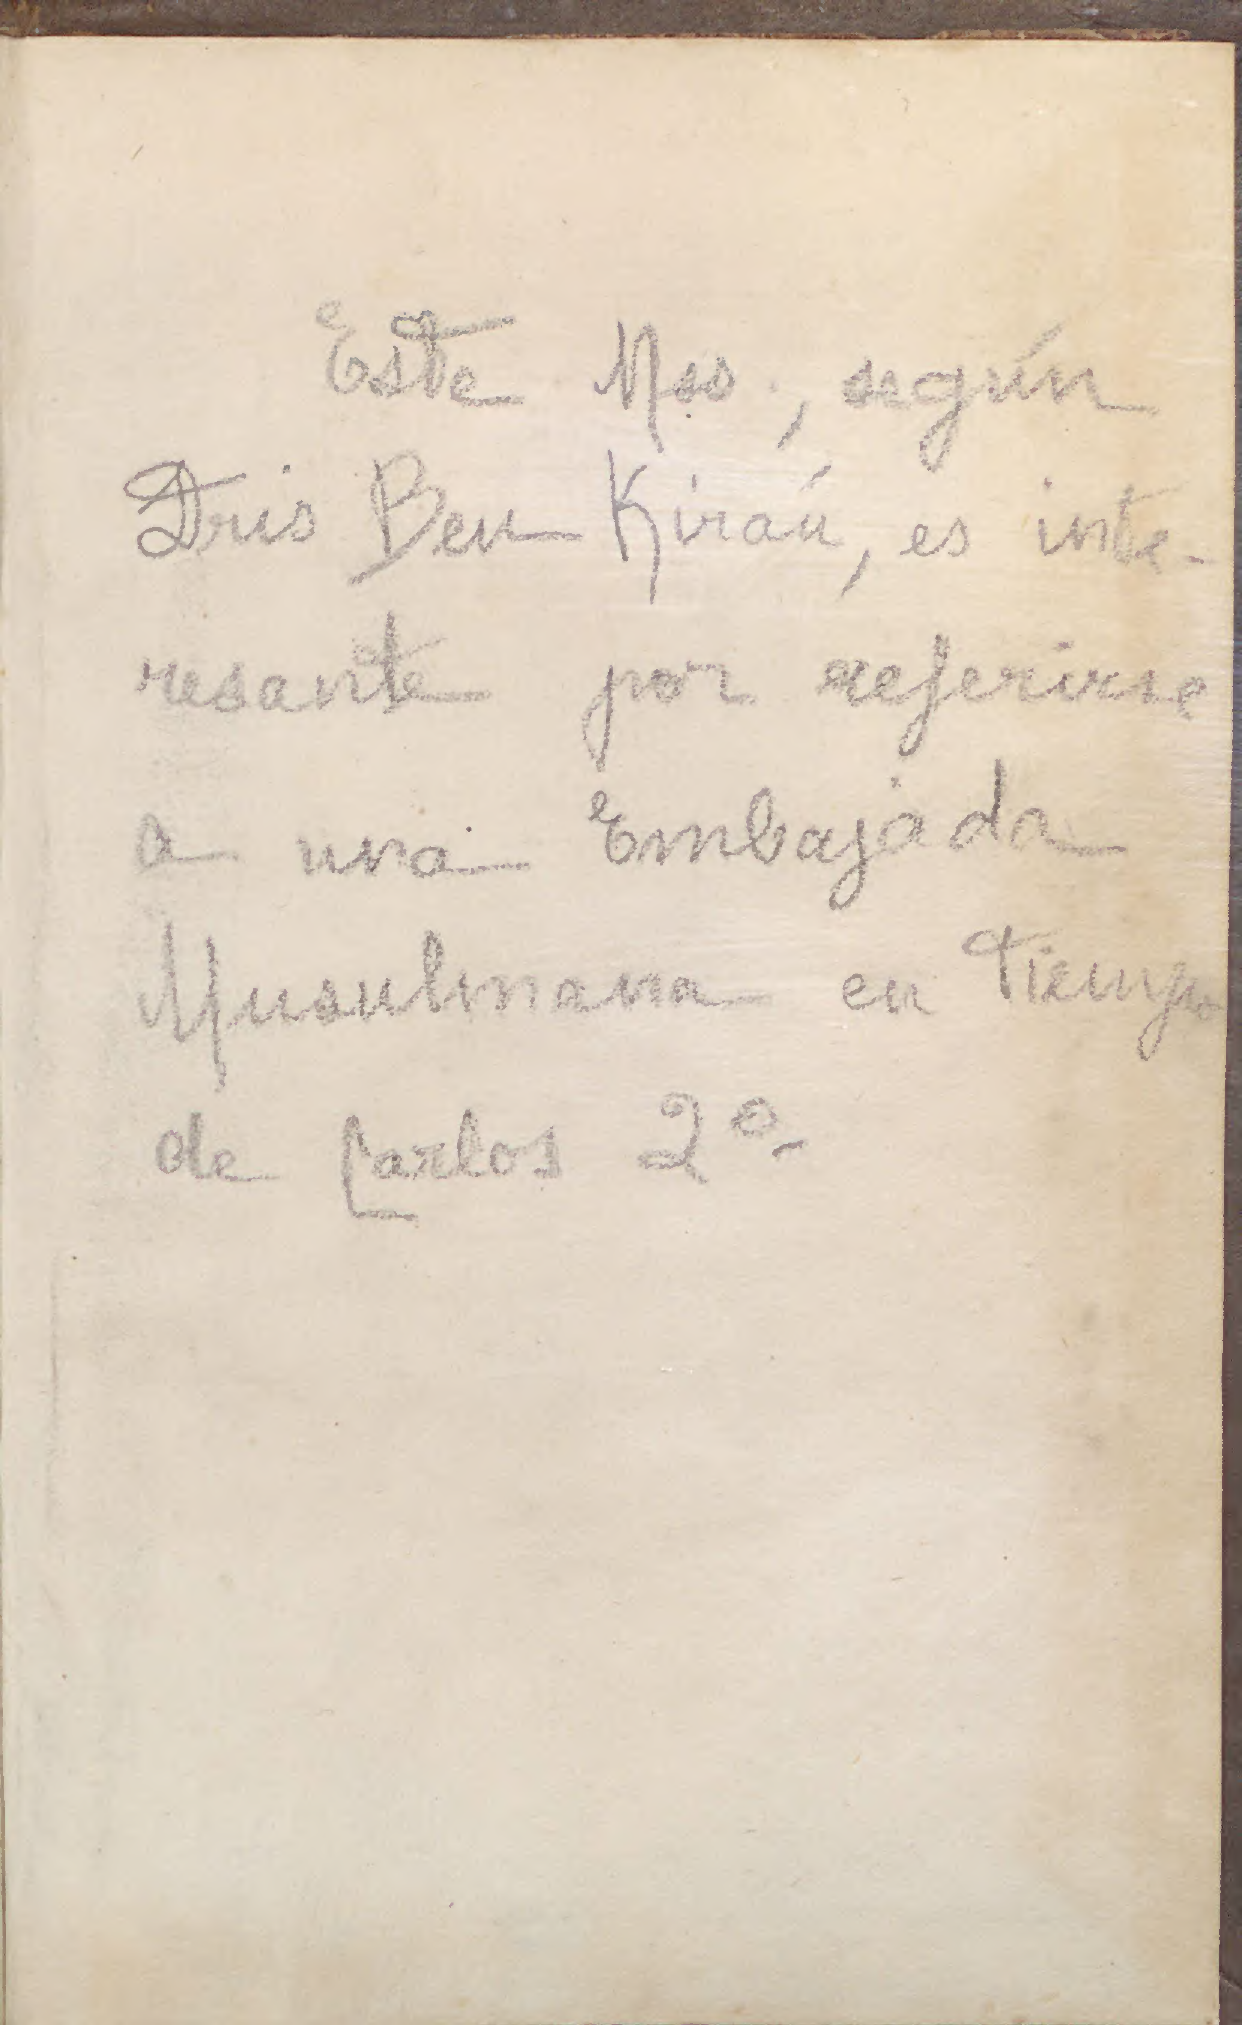 Este Mss., según
Dris Ben Kiran, es inte-
resante por referirse
a una Embajada
Musulmana en tiempo
de Carlos 2º.